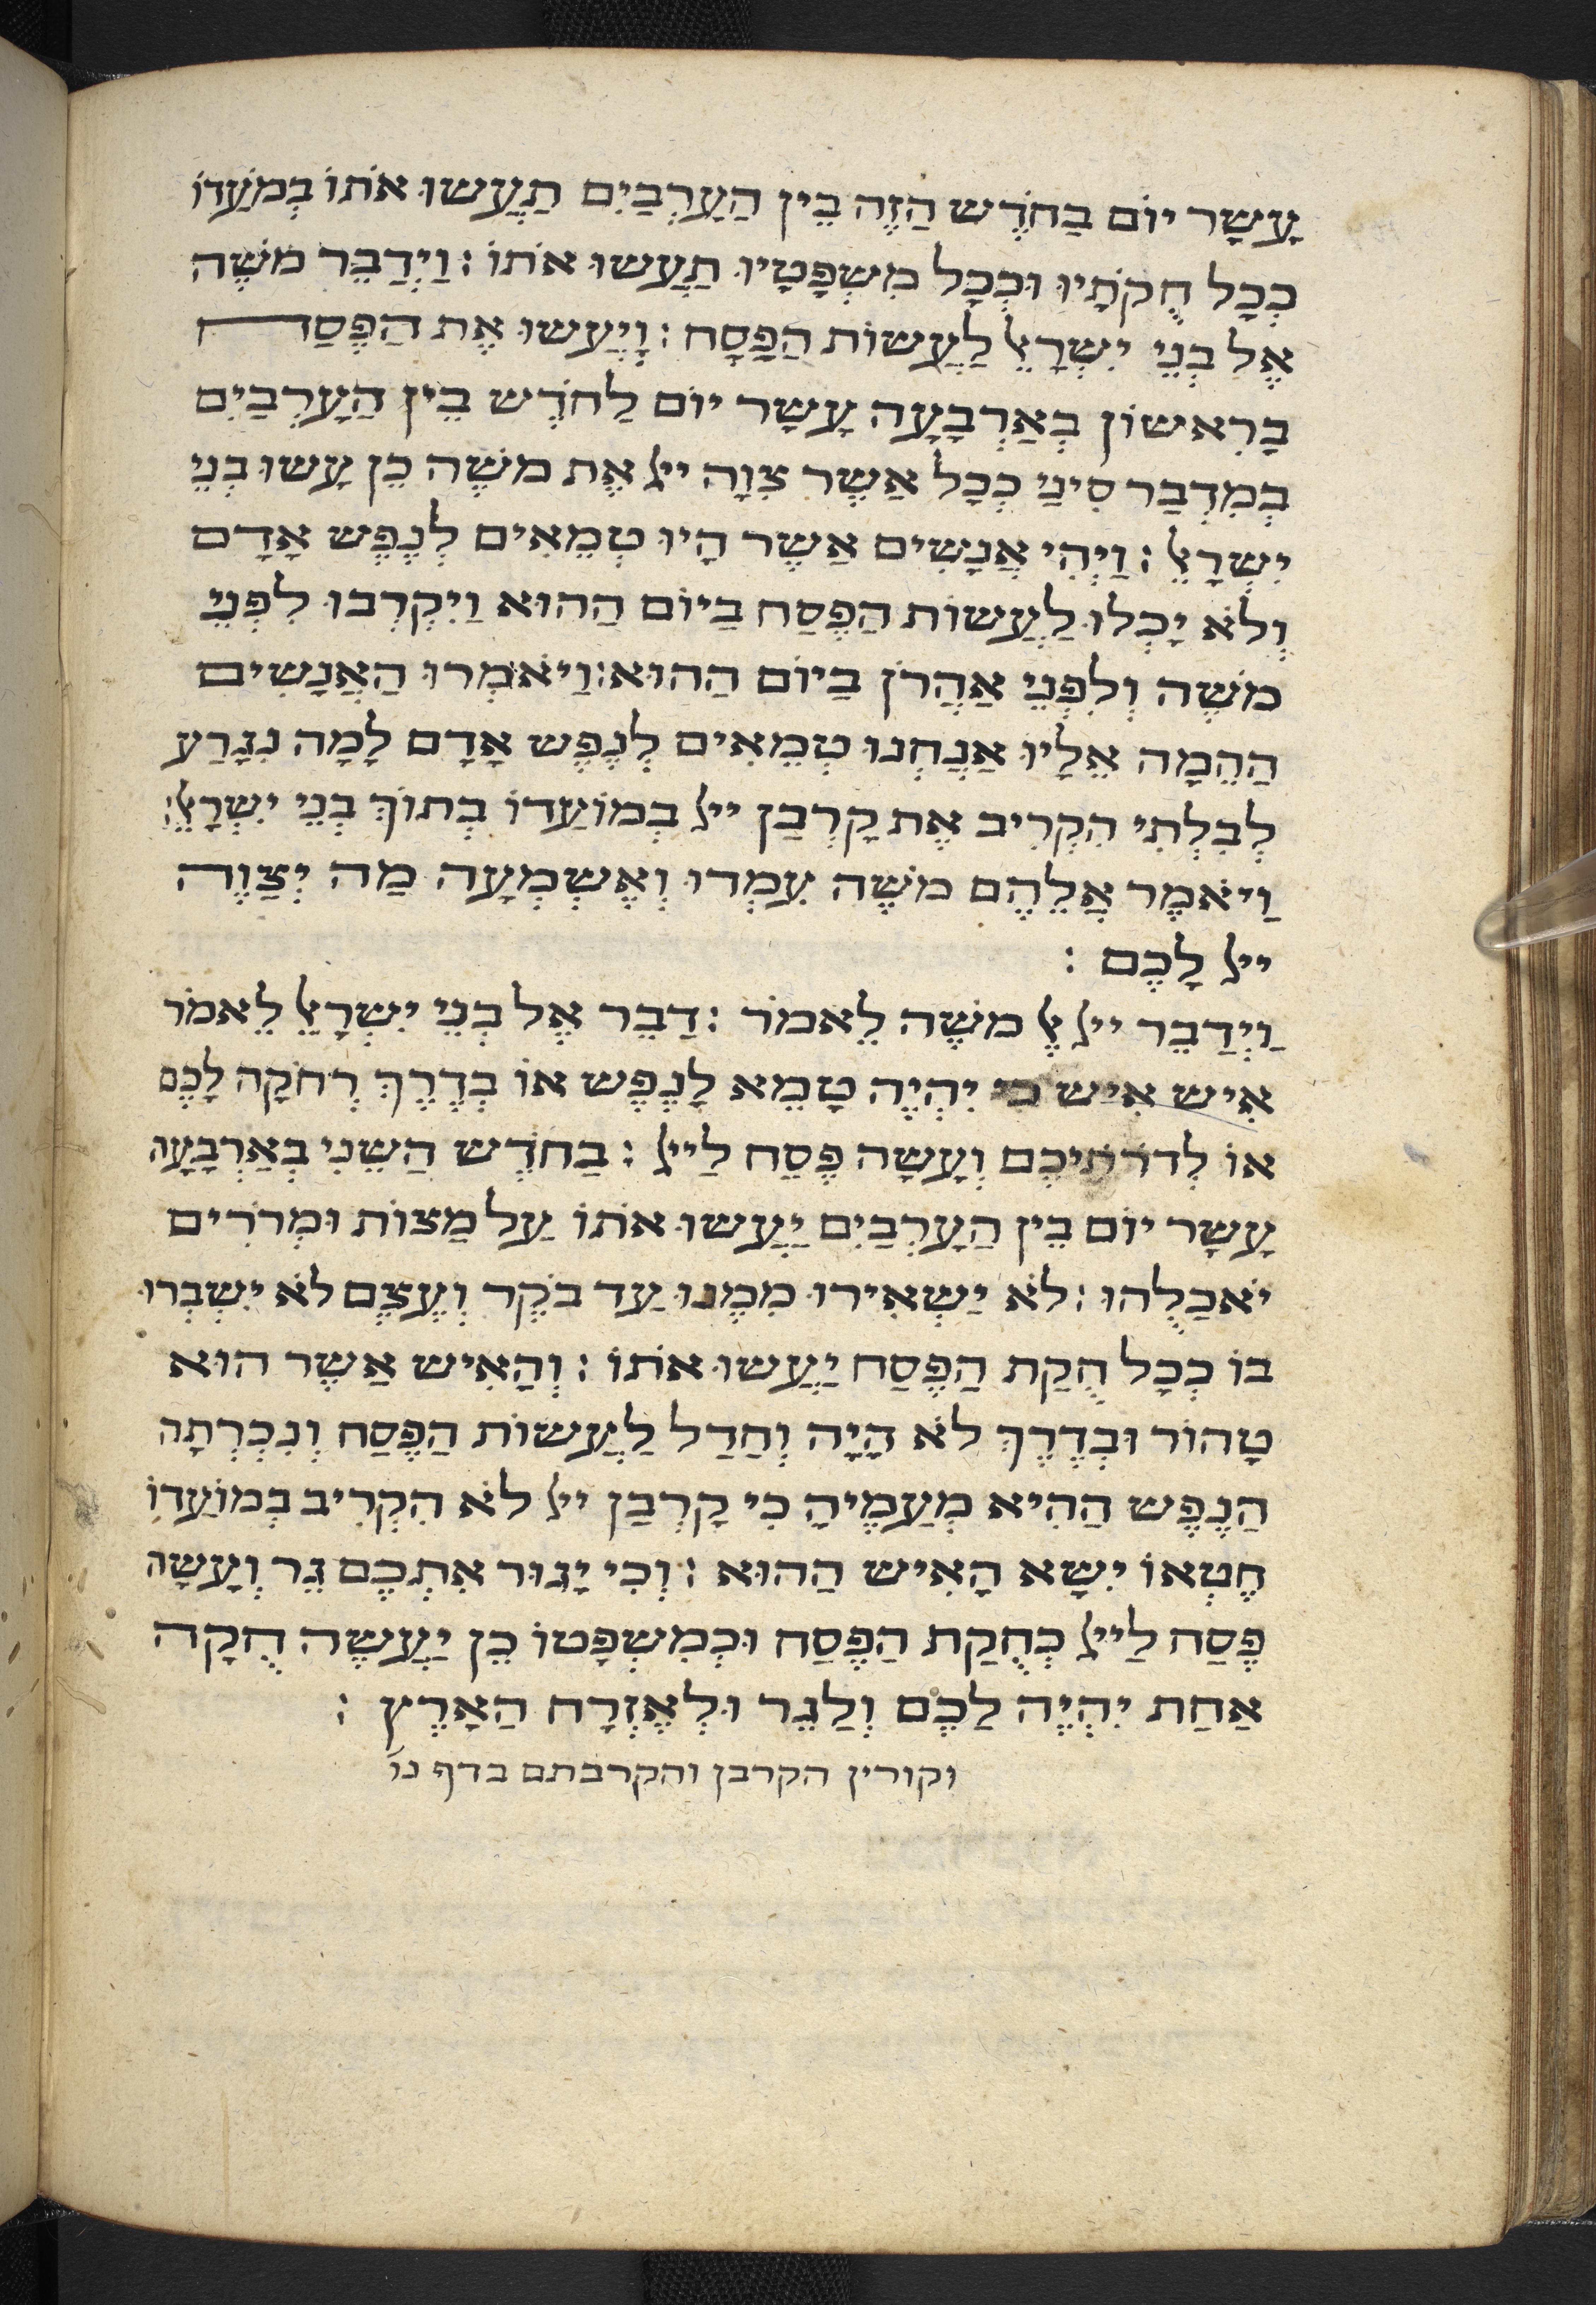 עָשָר יוֹם בַחֹדֶש הַזֶה בֵין הַעַרְבַיִם תַעֲשוּ אֹתוֹ בְמֹעֲדוֹ
כְכָל חֻקֹתָיו וּכְכָל מִשְפָטָיו תַעֲשוּ אֹתוֹ : וַיְדַבֵר משֶה
אֶל בְנֵי יִשְרָﭏֵ לַעֲשוֹת הַפָסַח : וַיַעֲשוּ אֶת הַפֶסַח
בָרִאשוֹן בְאַרְבָעָה עָשָר יוֹם לַחֹדֶש בֵין הָעַרְבַיִם
בְמִדְבַר סִינַי כְכָל אֲשֶר צִוָה ייל אֶת משֶה כֵן עָשוּ בְנֵי
יִשְרָﭏֵ : וַיְהִי אֲנָשִים אֲשֶר הָיוּ טְמֵאִים לְנֶפֶש אָדָם
וְלֹא יָכְלוּ לַעֲשוֹת הַפֶסַח בַיוֹם הַהוּא וַיִקְרְבוּ לִפְנֵי
משֶה וְלִפְנֵי אַהֲרֹן בַיוֹם הַהוּא : וַיֹאמְרוּ הָאֲנָשִים
הַהֵמָה אֵלָיו אֲנַחְנוּ טְמֵאִים לְנֶפֶש אָדָם לָמָה נִגָרַע
לְבִלְתִי הִקְרִיב אֶת קָרְבַן ייל בְמוֹעֲדוֹ בְתוֹךְ בְנֵי יִשְרָﭏֵ :
וַיֹאמֶר אֲלֵהֶם משֶה עִמְדוּ וְאֶשְמְעָה מַה יְצַוֶה
ייל לָכֶם :
וַיְדַבֵר ייל ﭏֶ משֶה לֵאמֹר : דַבֵר אֶל בְנֵי יִשְרָﭏֵ לֵאמֹר
אִיש אִיש כִי יִהְיֶה טָמֵא לָנֶפֶש אוֹ בְדֶרֶךְ רְחֹקָה לָכֶם
אוֹ לְדֹרֹתֵיכֶם וְעָשָה פֶסַח לַייל : בַחֹדֶש הַשֵנִי בְאַרְבָעָה
עָשָר יוֹם בֵין הָעַרְבַיִם יַעֲשוּ אֹתוֹ עַל מַצוֹת וּמְרֹרִים
יֹאכְלֻהוּ : לֹא יַשְאִירוּ מִמֶנוּ עַד בֹקֶר וְעֶצֶם לֹא יִשְבְרוּ
בוֹ כְכָל חֻקַת הַפֶסַח יַעֲשוּ אֹתוֹ : וְהָאִיש אֲשֶר הוּא
טָהוֹר וּבְדֶרֶךְ לֹא הָיָה וְחָדַל לַעֲשוֹת הַפֶסַח וְנִכְרְתָה
הַנֶפֶש הַהִיא מֵעַמֶיהָ כִי קָרְבַן ייל לֹא הִקְרִיב בְמוֹעֲדוֹ
חֶטְאוֹ יִשָא הָאִיש הַהוּא : וְכִי יָגוּר אִתְכֶם גֵר וְעָשָה
פֶסַח לַייל כְחֻקַת הַפֶסַח וּכְמִשְפָטוֹ כֵן יַעֲשֶה חֻקָה
אַחַת יִהְיֶה לָכֶם וְלַגֵר וּלְאֶזְרַח הָאָרֶץ :
וקורין הקרבן והקרבתם בדף נו